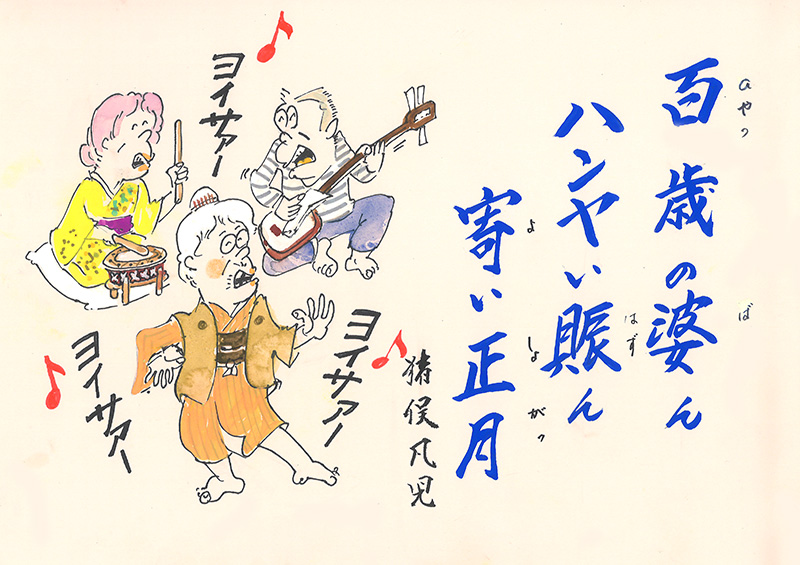 ひやっ ば
百歳の婆ん
はず
ハンヤい賑ん
よ しょ がっ
寄い正月
猪俣凡児
ヨイサァー
ヨイサァー
ヨイサァー